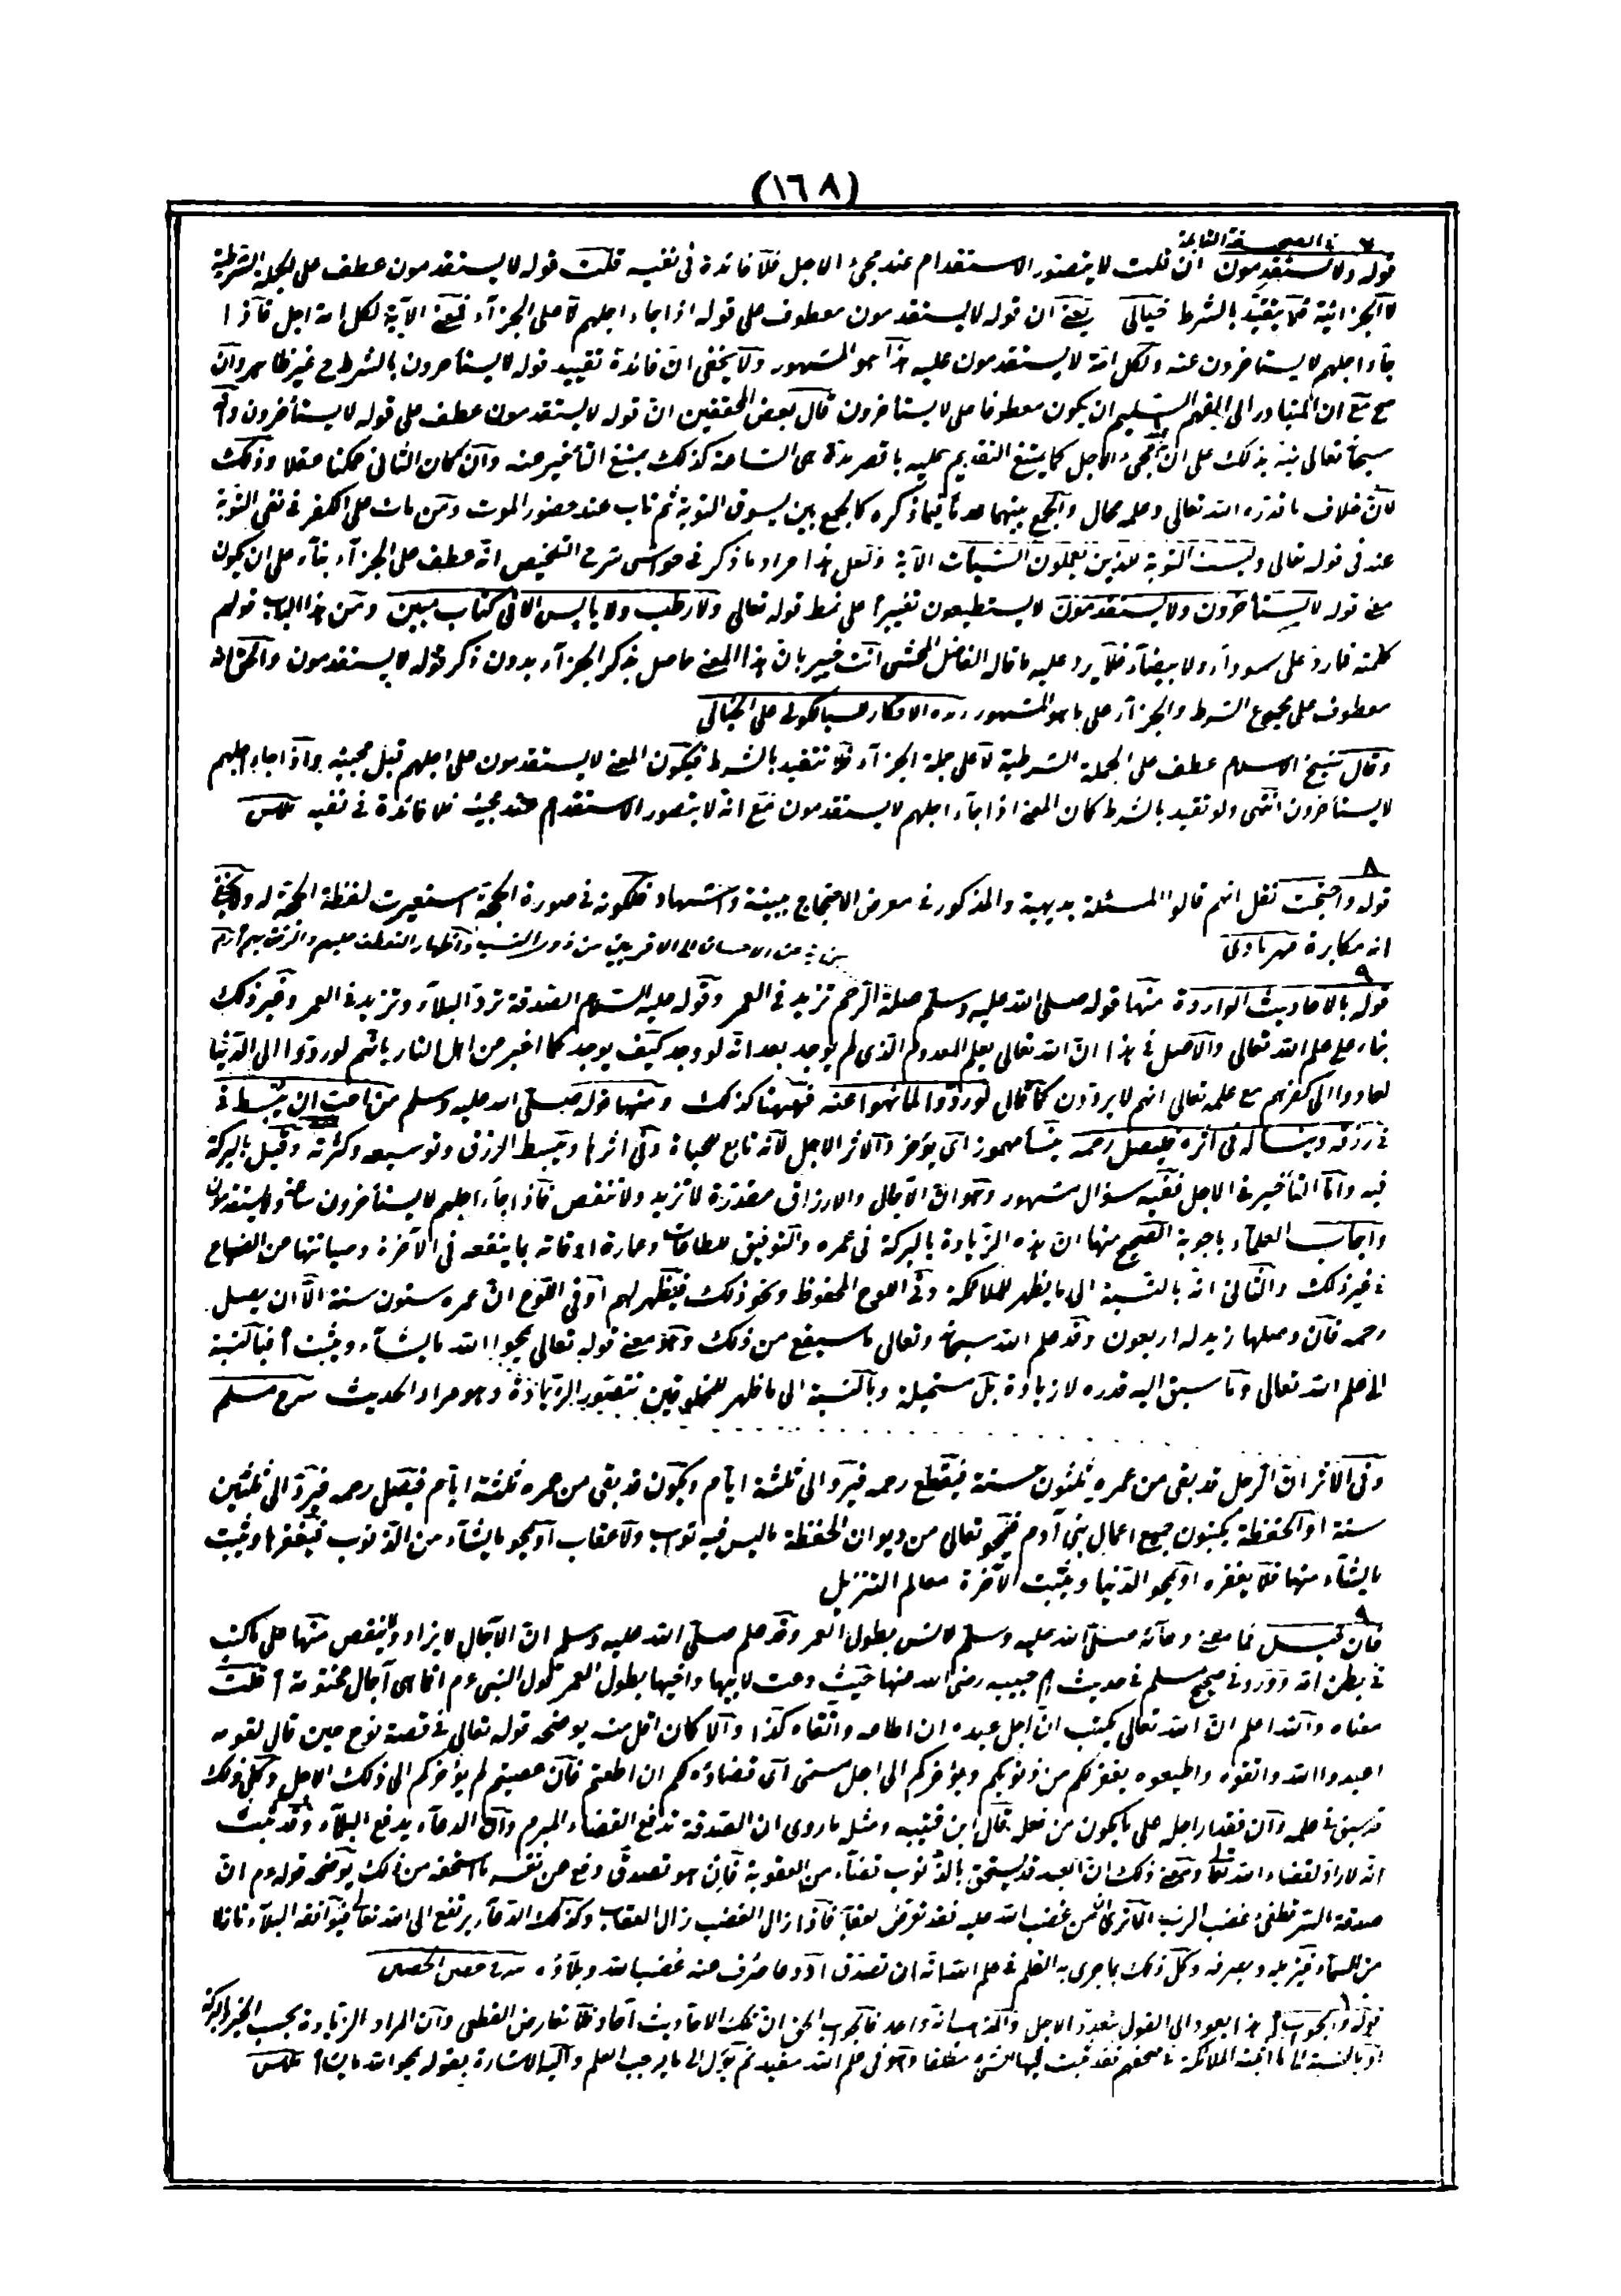 (١٦٨)
٧ في الصحيفة الثانية
قوله ولا يستقدمون ان قلت لا يتصور الاستقدام عند مجئ الاجل فلا فائدة في نفيه قلت قوله لا يستقدمون عطف على الجملة الشرطية
لا الجزائية فلا يتقيد بالشرط خيالى يعنى ان قوله لا يستقدمون معطوف على قوله اذا جاء اجلهم لا على الجزآء فمعنى الآية لكل امة اجل فاذا
جاء اجلهم لا يستأخرون عنه ولكل امة لا يستقدمون عليه هذا هو المشهور ولا يخفى ان فائدة تقييد قوله لا يستأخرون بالشرط ح غير ظاهر وان
صح مع ان المتبادر الى الفهم السليم ان يكون معطوفا على لا يستأخرون قال بعض المحققين ان قوله لا يستقدمون عطف على قوله لا يستأخرون
سبحانه تعالى نبه بذلك على ان عند مجئ الاجل كما يمتنع التقديم عليه باقصر مدة هى الساعة كذلك يمتنع التأخير عنه وان كان الثانى ممكنا عقلا وذلك
لان خلاف ما قدره الله تعالى وعلمه محال والجمع بينهما فيما ذكره كالجمع بين يسوف التوبة ثم تاب عند حضور الموت ومن مات على الكفر فى نفى التوبة
عنه فى قوله تعالى وليست التوبة للذين يعملون السيئات الآية ولعل هذا مراد ما ذكر فى حواشى شرح التلخيص انه عطف على الجزآء بناء على ان يكون
معنى قوله لا يستأخرون ولا يستقدمون لا يستطيعون تغييرا على نمط قوله تعالى ولا رطب ولا يابس الا فى كتاب مبين ومن هذا الباب قولهم
كلمته فما رد على سودآء ولا بيضآء فلا يرد عليه ما قال الفاضل المحشى انت خبير بان هذا المعنى حاصل بذكر الجزآء بدون ذكر قوله لا يستقدمون والحق انه
معطوف على مجموع الشرط والجزآء على ما هو المشهور زبدة الافكار لسيالكوتى على الخيالى
وقال شيخ الاسلام عطف على الجملة الشرطية لا على جملة الجزآء فلا تتقيد بالشرط فيكون المعنى لا يستقدمون على اجلهم قبل مجيئه واذا جاء اجلهم
لا يستأخرون انتهى ولو تقيد بالشرط كان المعنى اذا جآء اجلهم لا يستقدمون مع انه لا يتصور الاستقدام عند مجيئه فلا فائدة فى نفيه
٨
قوله واحتجت نقل انهم قالوا المسئلة بديهية والمذكور فى معرض الاحتجاج تنبيه واستشهاد فلكونه فى صورة الحجة استعيرت لفظة الحجة له ولا يخفى
انه مكابرة
من الاحسان الى الاقربين من ذوى النسب واظهار التعطف عليهم والرفق بهم
٩
قوله بالاحاديث الواردة منها قوله صلى الله عليه وسلم صلة الرحم تزيد فى العمر وقوله عليه السلام الصدقة ترد البلآء وتزيد فى العمر وغير ذلك
بناء على علم الله تعالى والاصل فى هذا ان الله تعالى يعلم المعدوم الذى لم يوجد بعد انه لو وجد كيف يوجد كما اخبر من اهل النار بانهم لو ردوا الى الدنيا
لعادوا الى كفرهم مع علمه تعالى انهم لا يردون كما قال لو ردوا لما نهوا عنه فههنا كذلك ومنها قوله صلى الله عليه وسلم من احب ان يبسط
فى رزقه وينسأ له فى اثره فليصل رحمه ينسأ مهموز اى يؤخر والاثر الاجل لانه تابع للحياة وفى اثرها وبسط الرزق وتوسيعه وكثرته وقيل بالبركة
فيه واما التأخير فى الاجل ففيه سؤال مشهور وهو ان الآجال والارزاق مقدرة لا تزيد ولا تنقص فاذا جآء اجلهم لا يستأخرون ساعة ولا يستقدمون
واجاب العلمآء باجوبة الصحيح منها ان هذه الزيادة بالبركة فى عمره والتوفيق للطاعات وعمارة اوقاته بما ينفعه فى الآخرة وصيانتها من الضياع
فى غير ذلك والثانى انه بالنسبة الى ما يظهر للملائكة وفى اللوح المحفوظ ونحو ذلك فيظهر لهم او فى اللوح ان عمره ستون سنة الا ان يصل
رحمه فان وصلها زيد له اربعون وقد علم الله سبحانه وتعالى ما سيقع من ذلك وهو معنى قوله تعالى يمحو الله ما يشآء ويثبت فبالنسبة
الى علم الله تعالى وما سبق اليه قدره لا زيادة بل مستحيلة وبالنسبة الى ما ظهر للمخلوقين تتصور الزيادة وهو مراد الحديث شرح مسلم
وفى الاثر ان الرجل قد بقى من عمره ثلثون سنة فيقطع رحمه فيرد الى ثلثة ايام ويكون قد بقى من عمره ثلثة ايام فيصل رحمه فيرد الى ثلثين
سنة او الحفظة يكتبون جميع اعمال بنى آدم فيمحو تعالى من ديوان الحفظة ما ليس فيه ثواب ولا عقاب او يمحو ما يشآء من الذنوب فيغفرها ويثبت
ما يشآء منها فلا يغفره او يمحو الدنيا ويثبت الآخرة معالم التنزيل
٩
فان قيل فما معنى دعآئه صلى الله عليه وسلم لانس بطول العمر وقد علم صلى الله عليه وسلم ان الآجال لا يزاد ولا ينقص منها على ما كتب
فى بطن امه وورد فى صحيح مسلم فى حديث ام حبيبه رضى الله عنها حيث دعت لابيها واخيها بطول العمر قول النبى عم انما هى آجال مختومة قلت
معناه والله اعلم ان الله تعالى يكتب ان اجل عبده ان اطاعه واتقاه كذا والا كان اقل منه يوضحه قوله تعالى فى قصة نوح حين قال لقومه
اعبدوا الله واتقوه واطيعوه يغفر لكم من ذنوبكم ويؤخركم الى اجل مسمى اى قضاؤه لكم ان اطعتم فان عصيتم لم يؤخركم الى ذلك الاجل وكل ذلك
قد سبق فى علمه وان مقدار اجله على ما يكون من فعله قال ابن قتيبه ومثله ما روى ان الصدقة تدفع القضاء المبرم وان الدعآء يدفع البلآء وقد ثبت
انه لا راد لقضاء الله تعالى ومعنى ذلك ان العبد قد يستحق بالذنوب قضآء من العقوبة فان هو تصدق دفع عن نفسه ما استحقه من ذلك يوضحه قوله عم ان
صدقة السر تطفئ غضب الرب الا ترى ان من غضب الله عليه فقد تعرض لعقابه فاذا زال الغضب زال العقاب وكذلك الدعآء يرتفع الى الله تعالى فيوافقه البلآء نازلا
من السمآء فيزيله ويصرفه وكل ذلك بما جرى به القلم فى علم الله انه ان تصدق او دعا صرف عنه غضب الله وبلاؤه شرح حصن الحصين
١٠
قوله والجواب هذا يعود الى القول بتعدد الاجل والمذهب انه واحد فالجواب الحق ان تلك الاحاديث آحاد فلا تعارض القطعى وان المراد الزيادة بحسب الخير والبركة
او بالنسبة الى ما اثبته الملائكة فى صحفهم فقد ثبت فيها الشئ مطلقا وهو فى علم الله مقيد ثم يؤل الى ما يوجب العلم واليه الاشارة بقوله يمحو الله ما يشاء